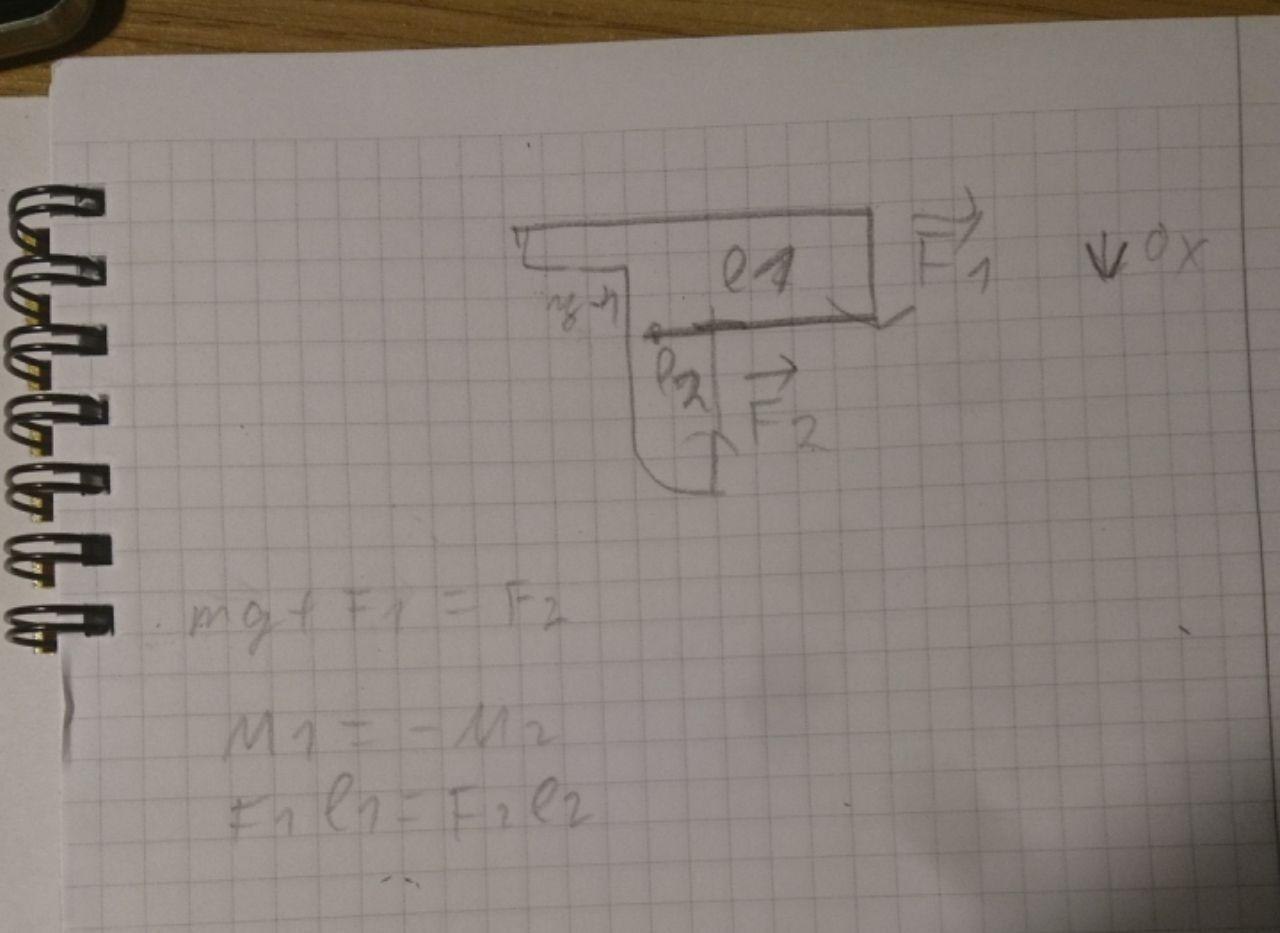 F1
0x
l1
l2
F2
mg + F1 = F2
M1 = - M2
F1 l1 = F2 l2